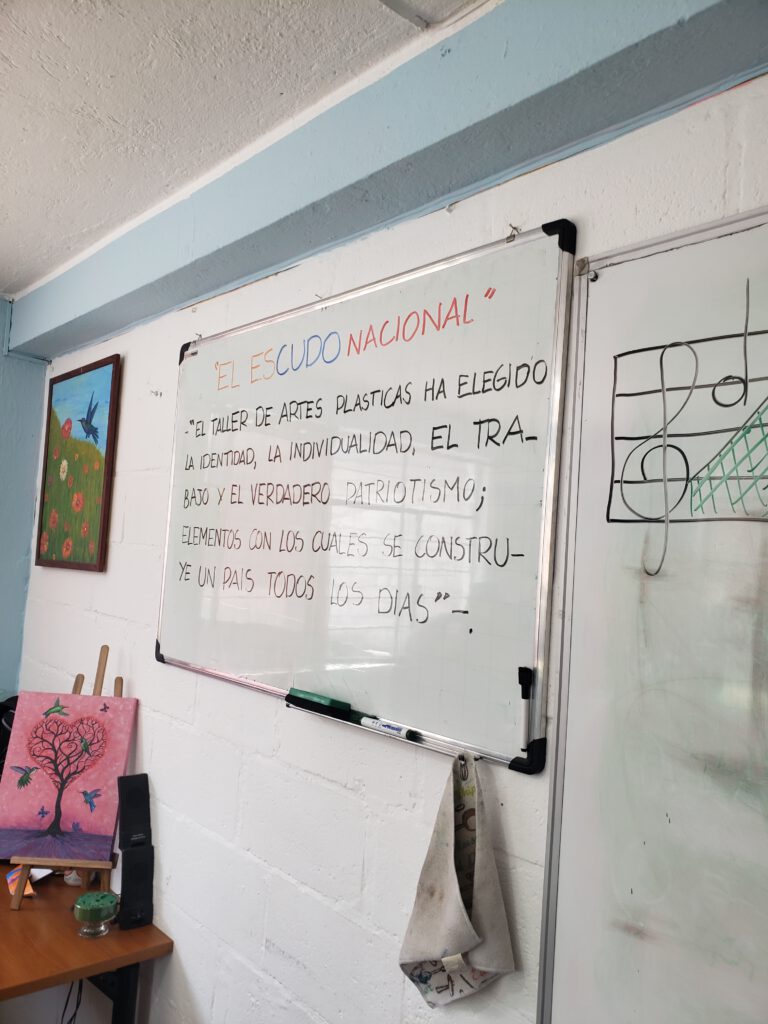 "EL ESCUDO NACIONAL"
-"EL TALLER DE ARTES PLASTICAS HA ELEGIDO
LA IDENTIDAD, LA INDIVIDUALIDAD, EL TRA-
BAJO Y EL VERDADERO PATRIOTISMO;
ELEMENTOS CON LOS CUALES SE CONSTRU-
YE UN PAIS TODOS LOS DIAS""-.